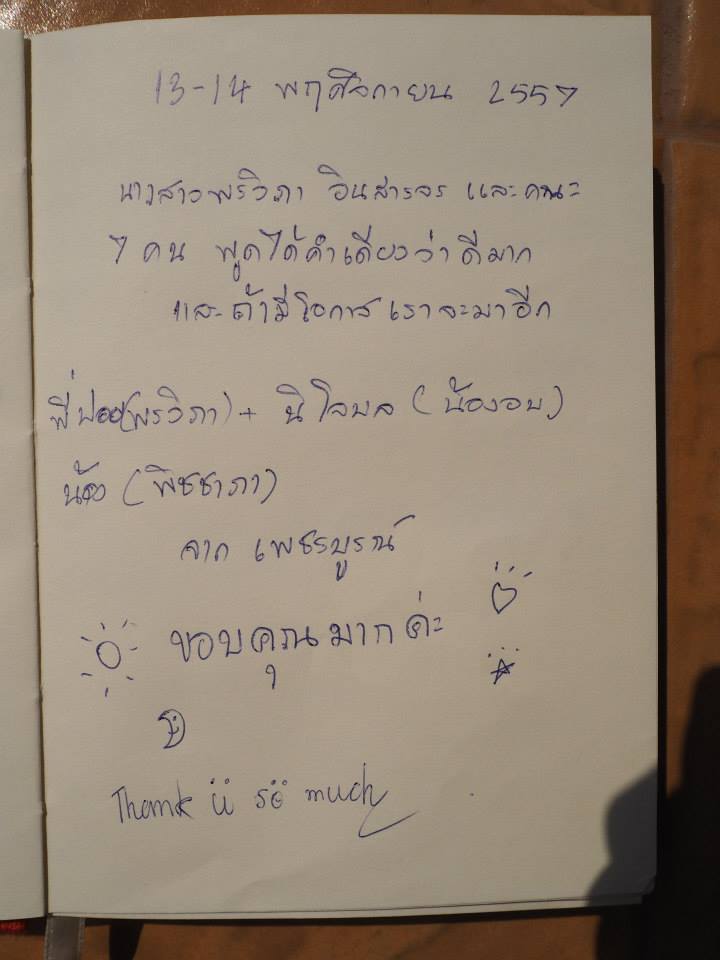 13-14 พฤศจิกายน 2557
นางสาวพรวิภา อินสารจร และคณะ
7 คน พูดได้คำเดียวว่าดีมาก
และถ้ามีโอกาสเราจะมาอีก
พี่ปอย(พรวิภา) + นิโลบล (น้องอบ)
น้อง (พิชชาภา)
จาก เพชรบูรณ์
ขอบคุณมากค่ะ
Thank ü sö much